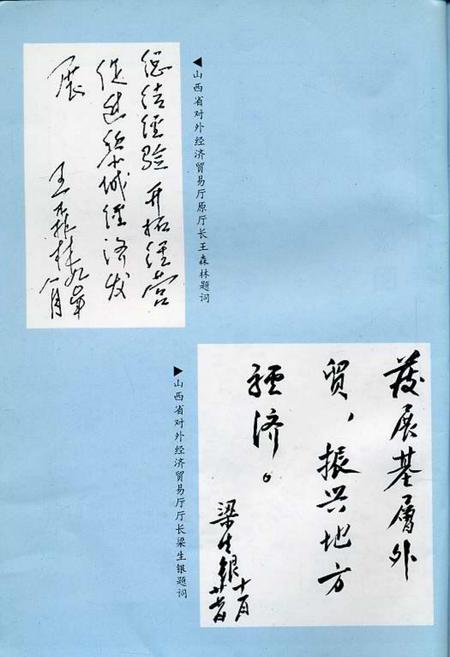 总结经验 开拓经营
促进黎城经济发
展
王森林
八月
◀山西省对外经济贸易厅原厅长王森林题词
發展基層外
贸，振兴地方
经济。
梁生银
▶山西省对外经济贸易厅厅长梁生银题词